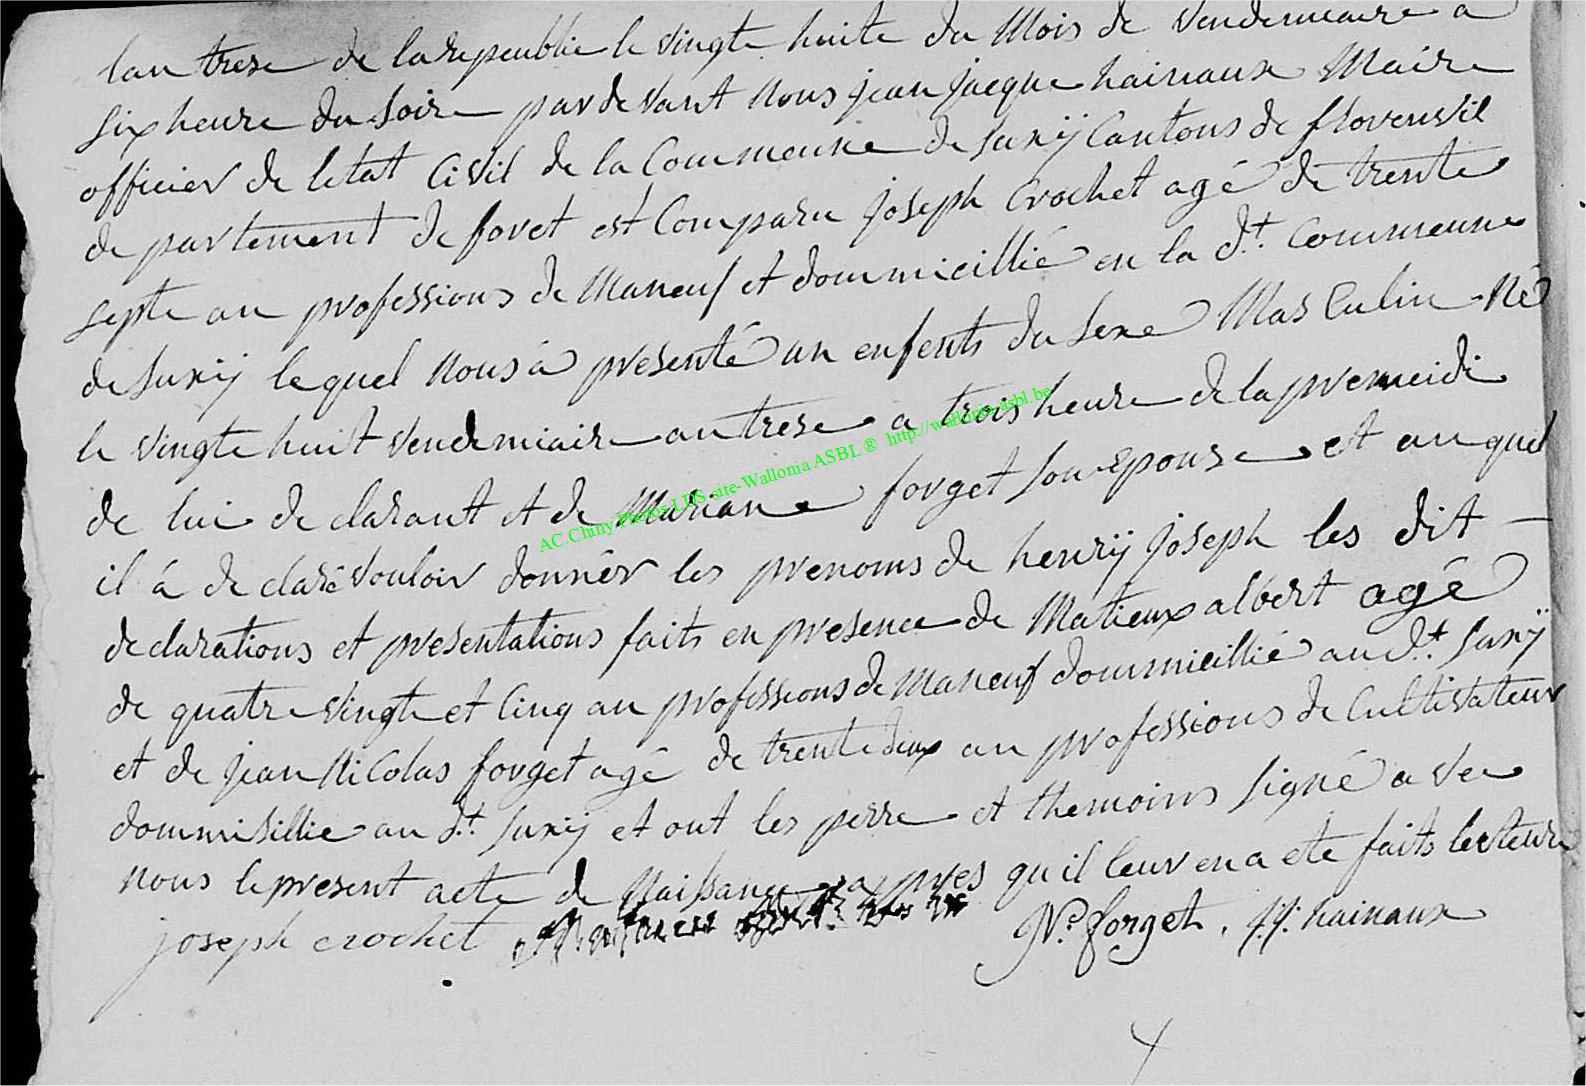 lan trese de la repeublie le vingte huite du Mois de Vendemeaire a
six heure du soire par de vant nous jean jacque hainaux Maire
officier de letat Civil de la Commeune de Suxÿ Cantons de florenvil
de partement de foret est Comparu joseph Crochet agé de trente
septe an professions de Maneuf et dommicillié en la dt. Commeune
de Suxÿ le quel nous à présenté un enfents du sexe Mas Culin Né
le vingte huit vendemiaire an trese a trois heure de la premeidi
de lui de clarant et de Mariane forget son Epouse et au quel
il à de claré vouloir donnér les prenoms de henrÿ joseph les dit
declarations et presentations faits en presence de Matieux albert agé
de quatre vingte et Cinq an professions de Maneuf dommicillié au dt. Suxÿ
et de jean Nicolas forget agé de trente deux an professions de Cultivateur
dommisillie au dt. Suxÿ et ont les perre et themoins signé a vec
nous le present acte de Naissance apres qu il leur en a ete faits lecteure
joseph crochet Ns. forget . j.j. hainaux
AC.Chiny Photos LDS site-Wallonia ASBL ® http://wallonia-asbl.be